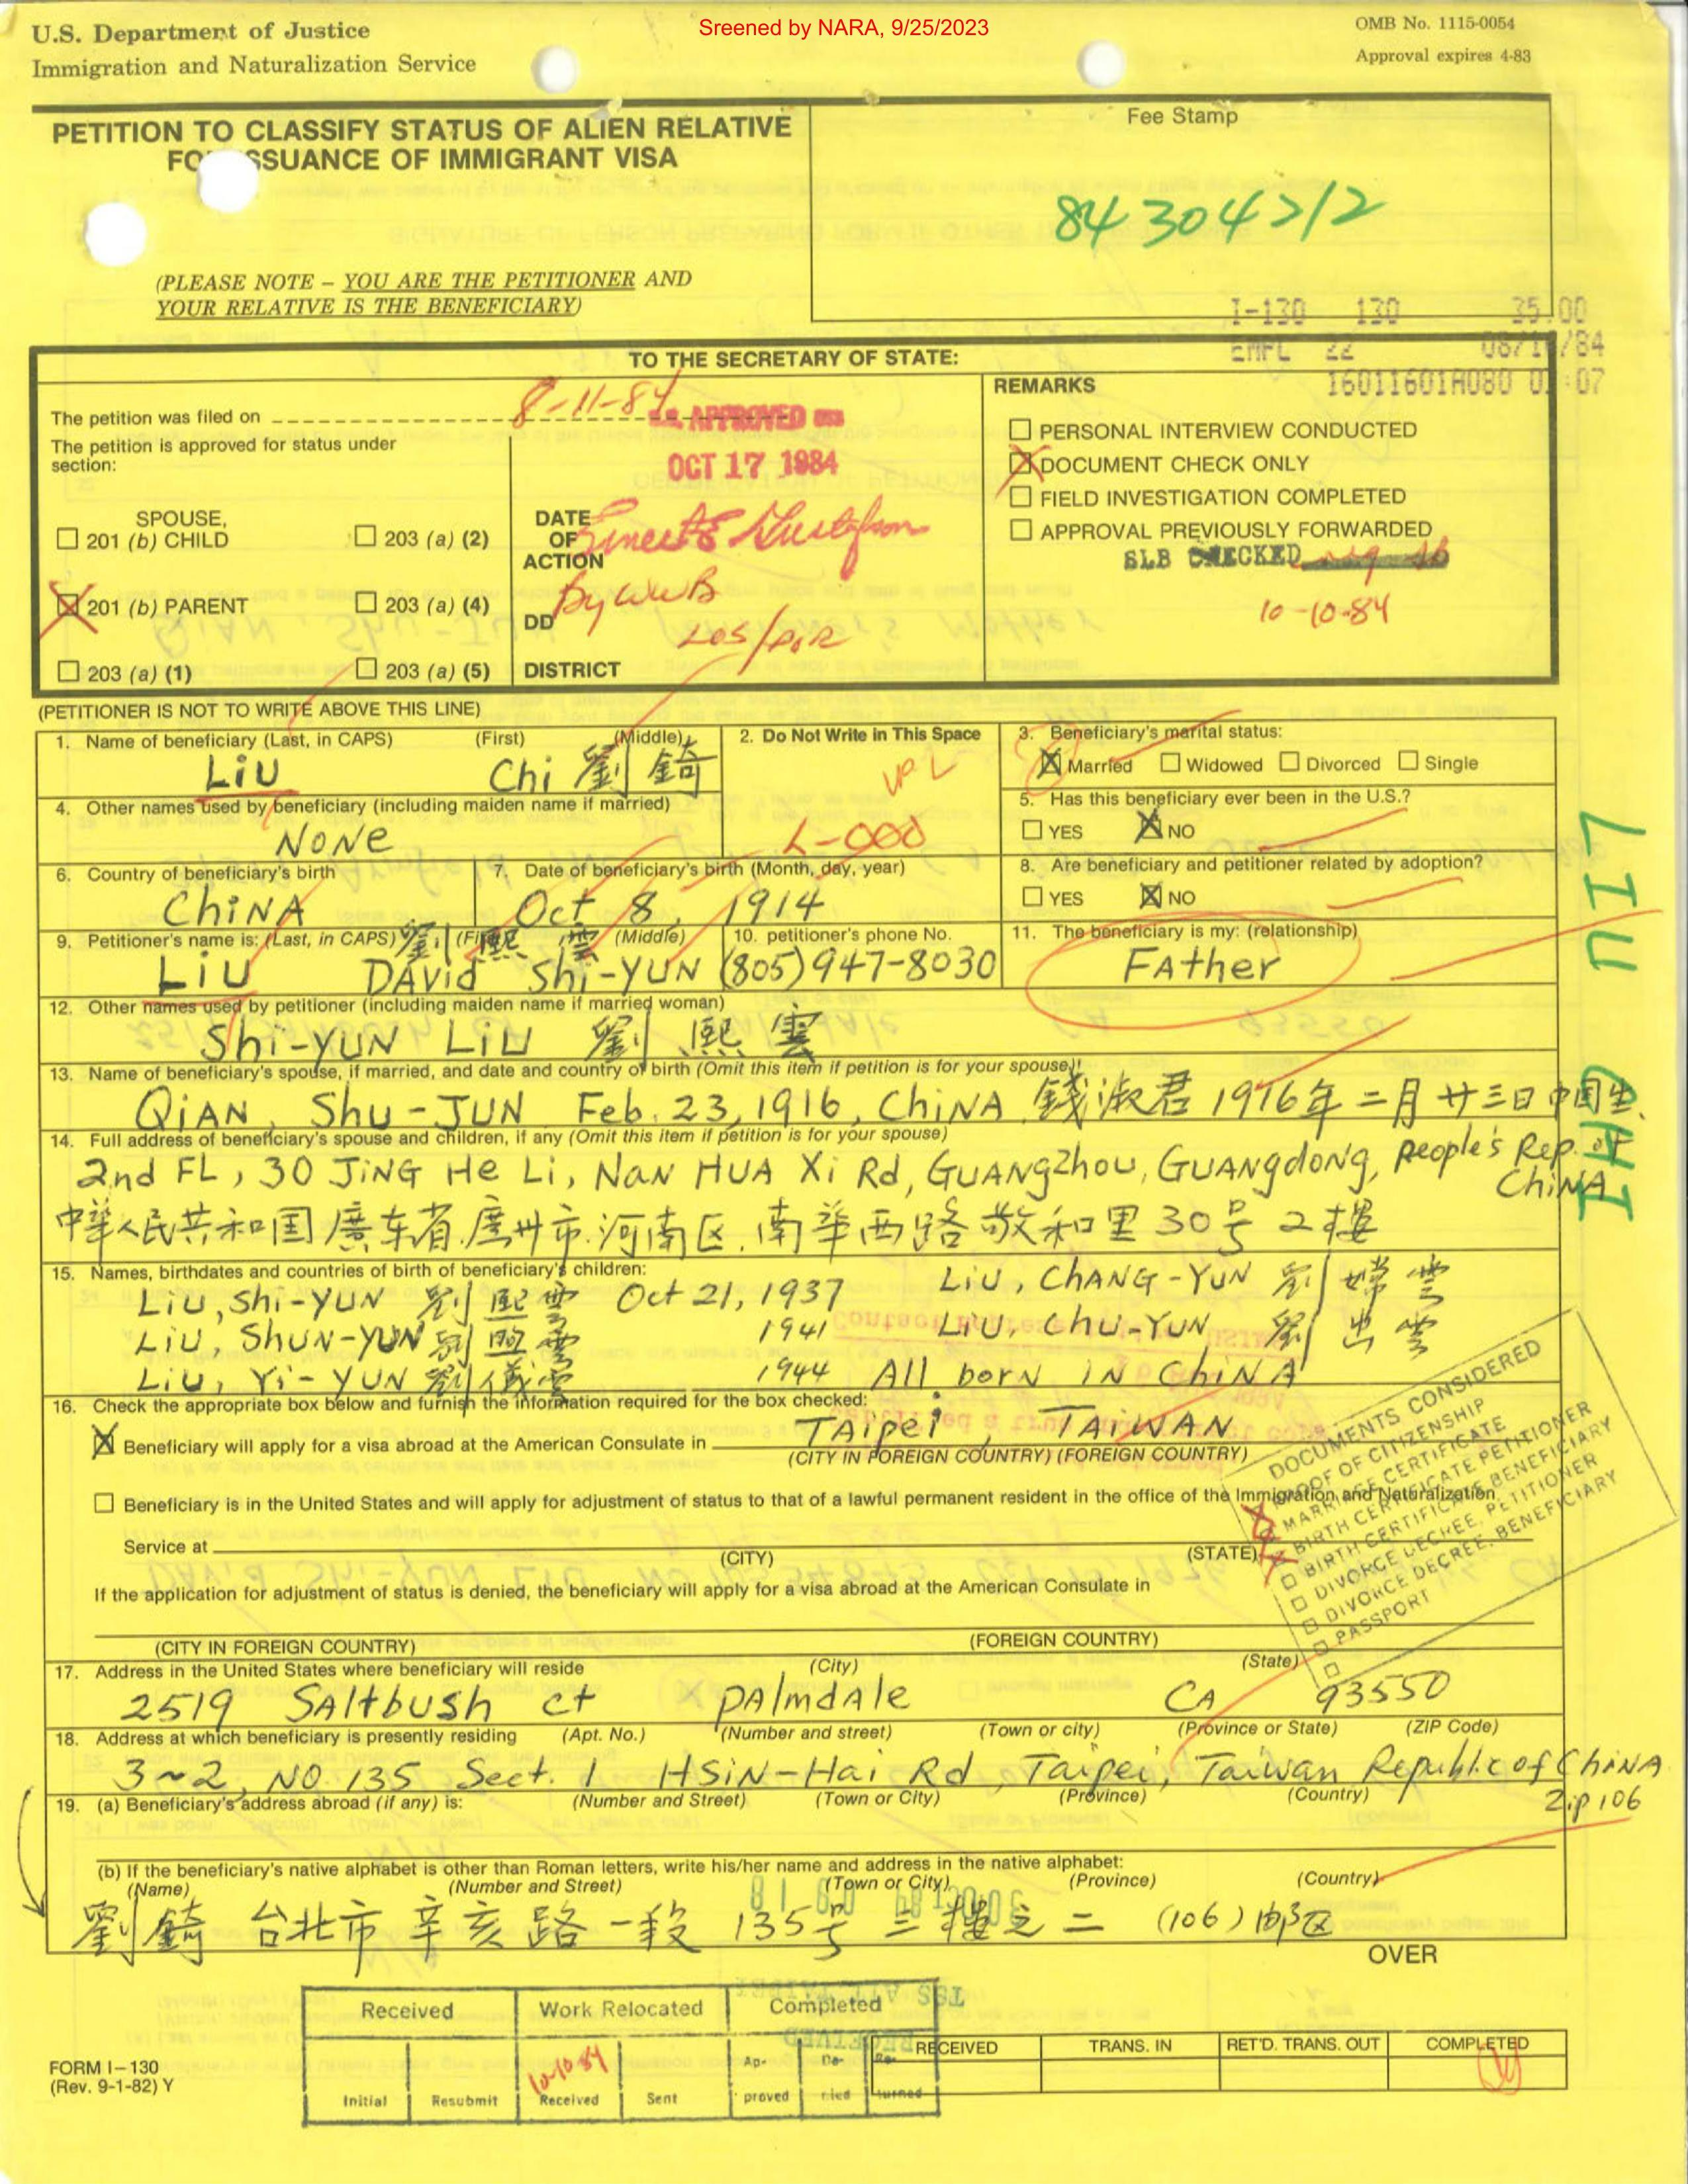 Sreened by NARA, 9/25/2023
U.S. Department of Justice
Immigration and Naturalization Service
OMB No. 1115-0054
Approval expires 4-83
PETITION TO CLASSIFY STATUS OF ALIEN RELATIVE
FO SSUANCE OF IMMIGRANT VISA
(PLEASE NOTE – YOU ARE THE PETITIONER AND
YOUR RELATIVE IS THE BENEFICIARY)
Fee Stamp
I-130 130 35.00
22 /84
TO THE SECRETARY OF STATE:
The petition was filed on 8-11-84
The petition is approved for status under
section:
SPOUSE,
201 (b) CHILD 203 (a) (2)
201 (b) PARENT 203 (a) (4)
203 (a) (1) 203 (a) (5)
APPROVED
OCT 17 1984
DATE
OF
ACTION
DD
DISTRICT
REMARKS
PERSONAL INTERVIEW CONDUCTED
DOCUMENT CHECK ONLY
FIELD INVESTIGATION COMPLETED
APPROVAL PREVIOUSLY FORWARDED
SLB CHECKED
10-10-84
(PETITIONER IS NOT TO WRITE ABOVE THIS LINE)
1. Name of beneficiary (Last, in CAPS) (First) (Middle)
LiU Chi 劉錡
2. Do Not Write in This Space
3. Beneficiary's marital status:
Married Widowed Divorced Single
4. Other names used by beneficiary (including maiden name if married)
NONe
5. Has this beneficiary ever been in the U.S.?
YES NO
6. Country of beneficiary's birth
ChiNA
7. Date of beneficiary's birth (Month, day, year)
Oct 8, 1914
8. Are beneficiary and petitioner related by adoption?
YES NO
9. Petitioner's name is: (Last, in CAPS) 劉 熙 雲 (Middle)
LiU DAVid Shi-YUN
10. petitioner's phone No.
(805) 947-8030
11. The beneficiary is my: (relationship)
FAther
LIU CHI
12. Other names used by petitioner (including maiden name if married woman)
Shi-YUN LiU 劉 熙 雲
13. Name of beneficiary's spouse, if married, and date and country of birth (Omit this item if petition is for your spouse)!
QiAN, Shu-JUN Feb. 23, 1916, ChiNA 錢淑君 1916年二月廿三日中国生.
14. Full address of beneficiary's spouse and children, if any (Omit this item if petition is for your spouse)
2nd FL, 30 JiNG He Li, NaN HUA Xi Rd, GUANgzhou, GUANgdong, People's Rep. of
ChiNA
中華人民共和国廣东省.廣州市.河南区.南華西路敬和里30号2樓
15. Names, birthdates and countries of birth of beneficiary's children:
LiU, Shi-YUN 劉熙雲 Oct 21, 1937 LiU, ChANG-YUN 劉嫦雲
LiU, ShUN-YUN 1941 LiU, ChU-YUN 劉出雲
LiU, Yi-YUN 劉儀雲 1944 All borN iN ChiNA
16. Check the appropriate box below and furnish the information required for the box checked:
Beneficiary will apply for a visa abroad at the American Consulate in TAipei, TAiWAN
(CITY IN FOREIGN COUNTRY) (FOREIGN COUNTRY)
Beneficiary is in the United States and will apply for adjustment of status to that of a lawful permanent resident in the office of the Immigration and Naturalization
Service at
(CITY) (STATE)
If the application for adjustment of status is denied, the beneficiary will apply for a visa abroad at the American Consulate in
(CITY IN FOREIGN COUNTRY) (FOREIGN COUNTRY)
DOCUMENTS CONSIDERED
PROOF OF CITIZENSHIP
MARRIAGE CERTIFICATE
BIRTH CERTIFICATE PETITIONER
BIRTH CERTIFICATE BENEFICIARY
DIVORCE DECREE, PETITIONER
DIVORCE DECREE, BENEFICIARY
PASSPORT
17. Address in the United States where beneficiary will reside (City) (State)
2519 SAltbush ct PAlmdAle CA 93550
18. Address at which beneficiary is presently residing (Apt. No.) (Number and street) (Town or city) (Province or State) (ZIP Code)
3~2, NO 135 Sect. 1 HSiN-Hai Rd, Taipei, Taiwan Republic of ChiNA
Zip 106
19. (a) Beneficiary's address abroad (if any) is: (Number and Street) (Town or City) (Province) (Country)
(b) If the beneficiary's native alphabet is other than Roman letters, write his/her name and address in the native alphabet:
(Name) (Number and Street) (Town or City) (Province) (Country)
劉錡 台北市 辛亥路 一段 135号 三樓之二 (106)郵区
OVER
Received Work Relocated Completed
10-10-84
Initial Resubmit Received Sent
RECEIVED TRANS. IN RET'D. TRANS. OUT COMPLETED
FORM I–130
(Rev. 9-1-82) Y